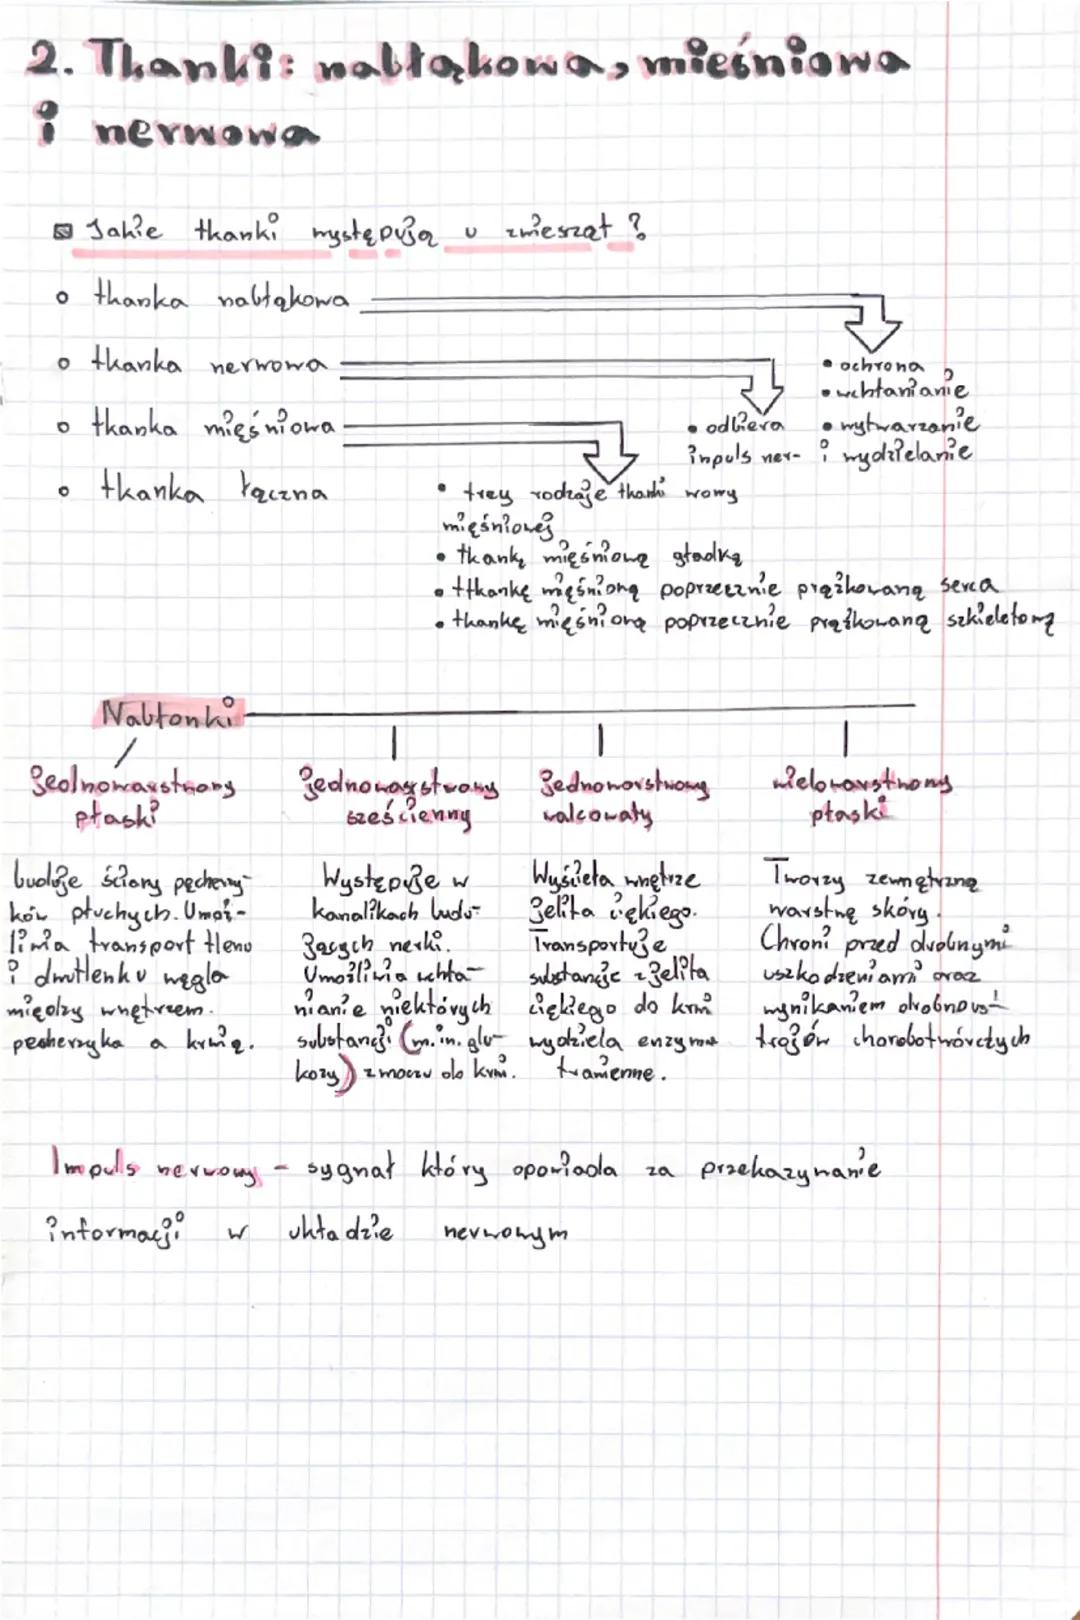 2. Tkanki: nabłąkowa, mięśniowa
i nerwowa
Jakie tkanki występują u zwierząt?
tkanka nabłąkowa
tkanka nerwowa
tkanka mięśniowa
tkanka łączna
• ochrona
• wchłanianie
• wytwarzanie
i wydzielanie
• odbiera
inpuls ner-
wowy
• trzy rodzaje tkanki
mięśniowej
• tkankę mięśniową gładką
• tkankę mięśnioną poprzecznie prążkowaną serca
• tkankę mięśnioną poprzecznie prążkowaną szkieletową
Nabłonki
Jednowarstwowy
płaski
buduje ściany pęcherzy-
ków płuchych. Umoż-
liwia transport tlenu
i dwutlenku węgla
między wnętrzem
pecherzyka a krwią.
jednowarstwowy
sześcienny
Występuje w
kanalikach budu-
jących nerki.
Umożliwia wchła-
nianie niektórych
substancji (m.in. glu-
kozy) z moczu do krwi.
Jednowarstwowy
walcowaty
Wyścieła wnętrze
jelita cękiego.
Transportuje
substancje z jelita
ciękiego do krwi
wydziela enzymy
trawienne.
wielowarstwowy
płaski
Tworzy zewnętrzną
warstwę skóry.
Chroni przed drobnymi
uszkodzeniami oraz
wynikaniem drobnous-
trojów chorobotwórczych
Impuls nerwowy - sygnał który opowiada za przekazywanie
informacji w układzie nerwowym